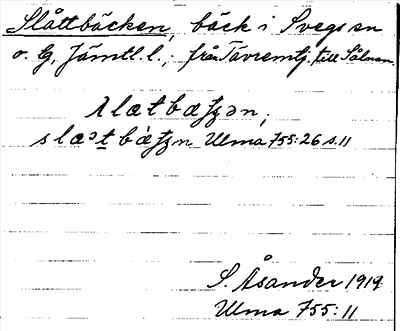 Slåttbäcken, bäck i Svegs sn
o. G, Jämtl. l.; från Tävremtj. till Sölman.
λlætbæʄʒən,
slæɔt bæʄʒn Ulma 755:26 s.11
S. Åsander 1919
Ulma 755:11